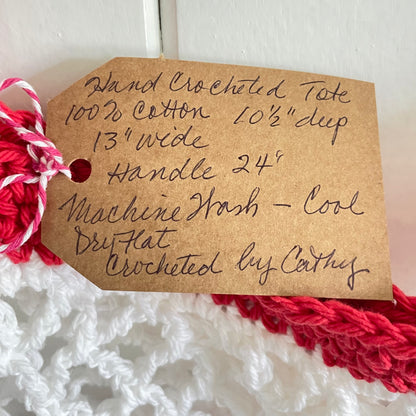 Hand Crocheted Tote
100% cotton 10½" deep
13" wide
Handle 24"
Machine Wash – Cool
Dry Flat
Crocheted by Cathy